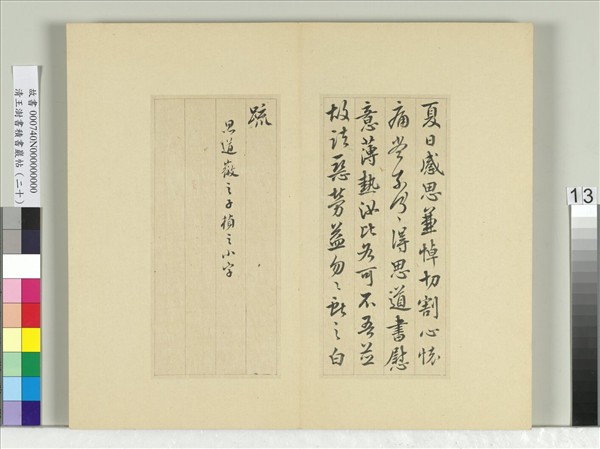 夏日感思兼悼切割心懷
痛當奈何〻得思道書慰
意薄熱汝比各可不吾並
故諸惡勞益勿〻獻之白
疏
思道徽之子楨之小字
故書 000740N000000000
清王澍書積書巖帖（二十）
13